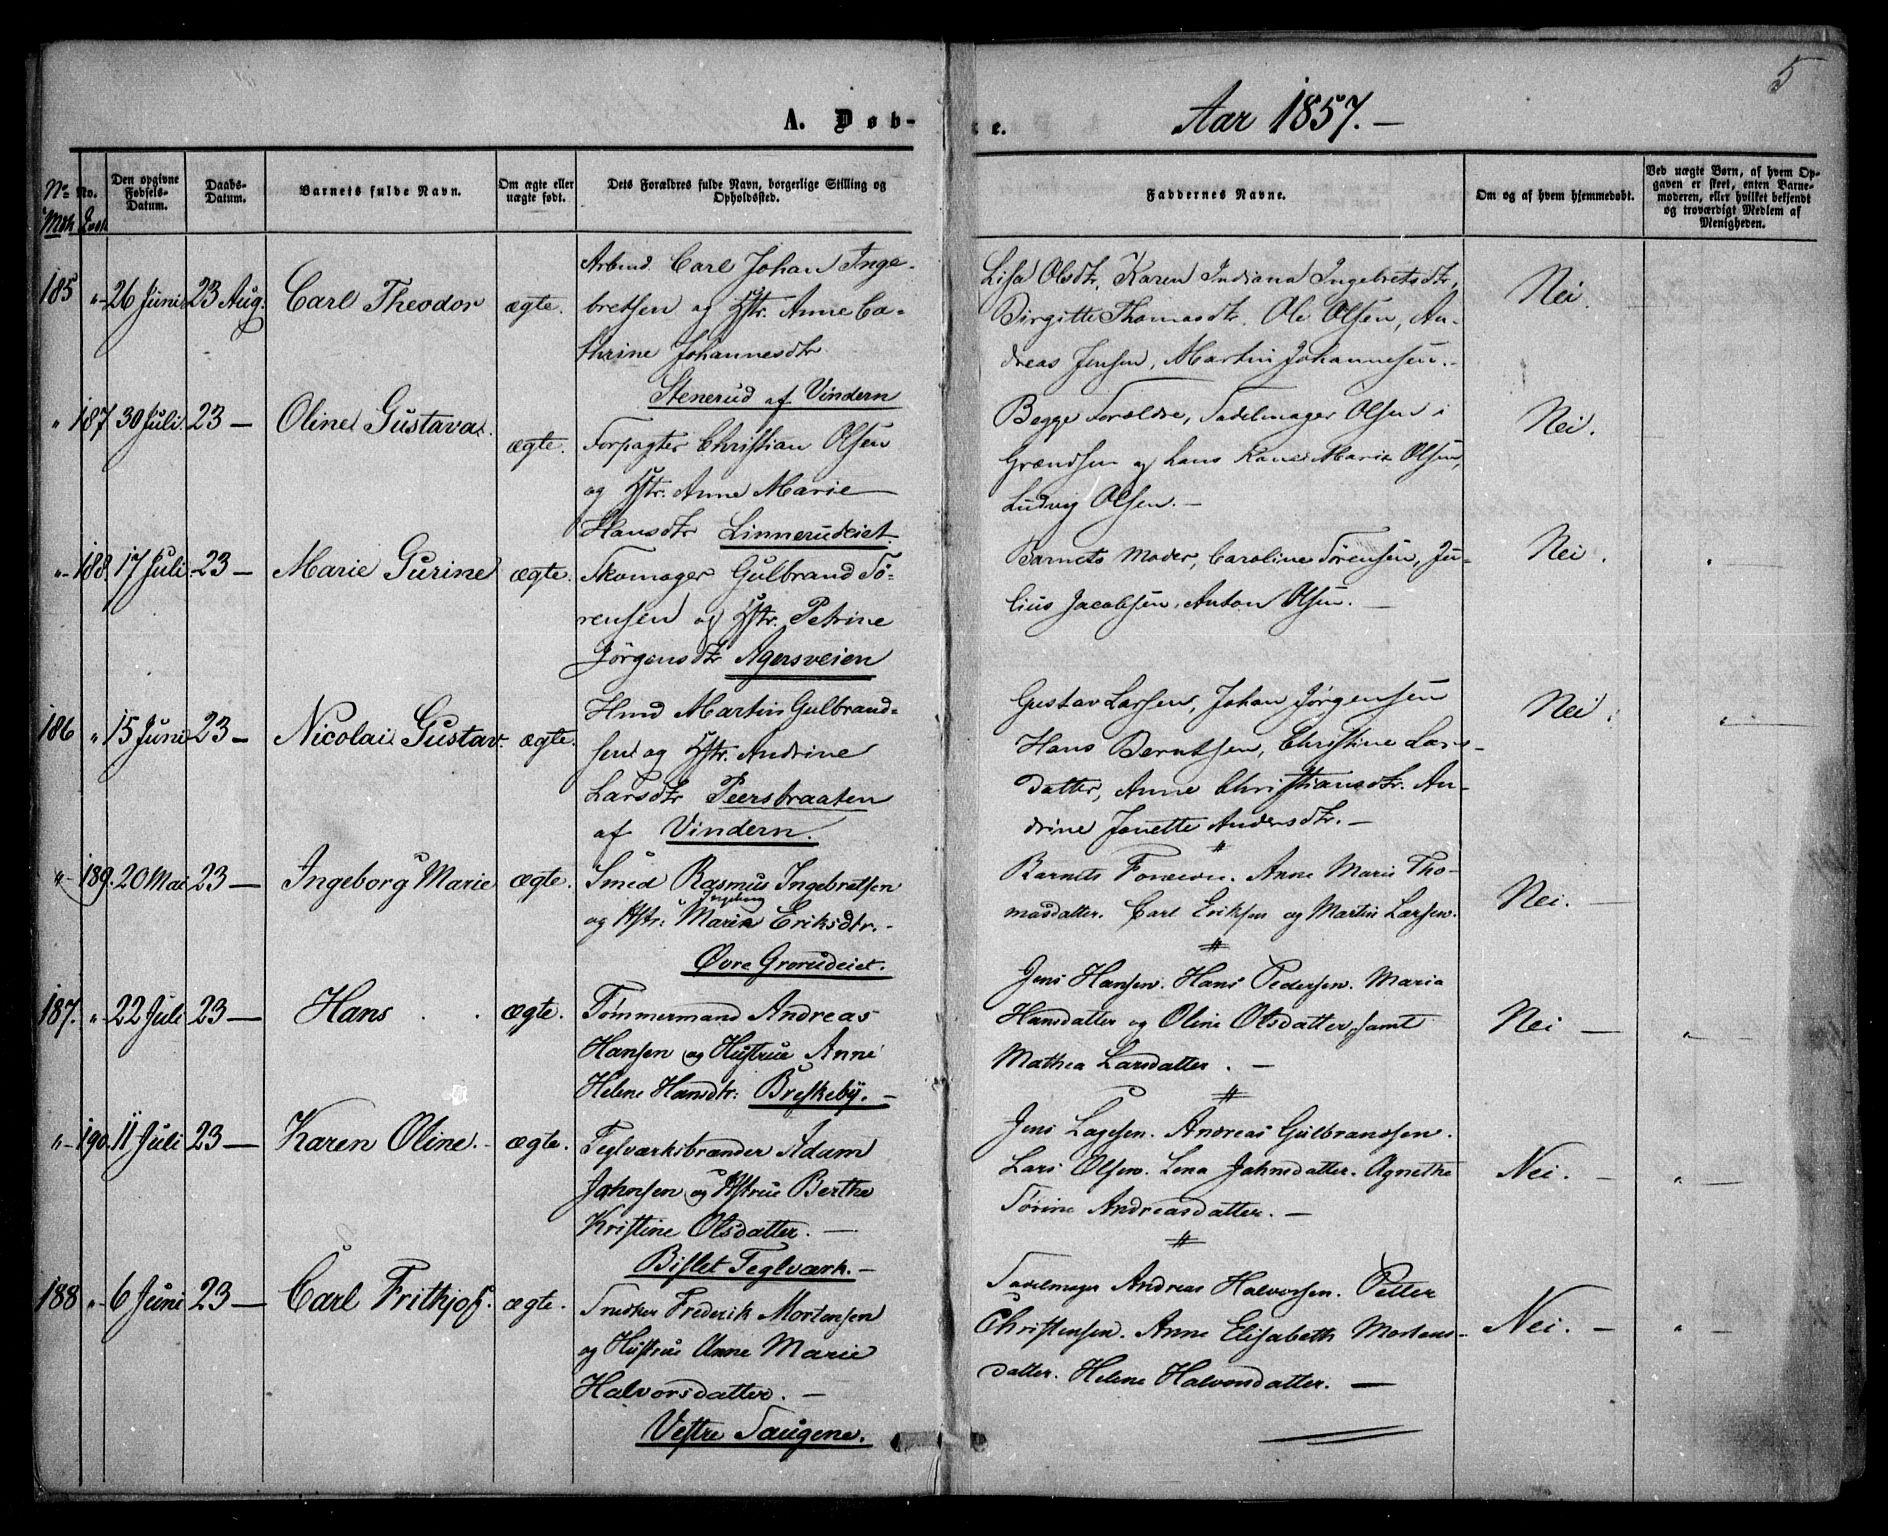 5
A. Døb-
te.
Aar 1857. —
No No.
Mdk. Qvdk.
Den opgivne Fødsels-Datum.
Daabs-Datum.
Barnets fulde Navn.
Om ægte eller uægte født.
Dets Forældres fulde Navn, borgerlige Stilling og Opholdssted.
Faddernes Navne.
Om og af hvem hjemmedøbt.
Ved uægte Børn, af hvem Opgaven er skeet, enten Barnemoderen, eller hvilket bekjendt og troværdigt Medlem af Menigheden.
185 " 26 Juni 23 Aug. Carl Theodor ægte.
Arbmd. Carl Johan Inge-
bretsen og Hstr. Anne Ca-
thrine Johannesdtr
Stenerud af Vindern
Lisa Olsdtr, Karen Indiana Ingebretsdtr,
Birgitte Thomasdtr. Ole Olsen, An-
dreas Jensen, Martin Johannesen. -
Nei.
" 187 30 Juli 23 — Oline Gustava. ægte.
Forpagter Christian Olsen
og Hstr. Anne Marie
Hansdtr Linnerudeiet
Begge Forældre, Sadelmager Olsen i
Grændsen og hans Kone Marie Olsen,
Ludvig Olsen. —
Nei.
" 188. 17 Juli 23 — Marie Gurine ægte.
Skomager Gulbrand Sö-
rensen og Hstr. Petrine
Jörgensdtr Agersveien
Barnets Moder, Caroline Sørensen, Ju-
lius Jacobsen, Anton Olsen. —
Nei.
186 " 15 Juni 23 — Nicolai Gustav. ægte.
Hmd Martin Gulbrand-
sen og Hstr. Andrine
Larsdtr Peersbraaten
af Vindern.
Gustav Larsen, Johan Jørgensen
Hans Berntsen, Christine Lars-
datter, Anne Christiansdtr. An-
drine Jonette Andersdtr. —
Nei.
" 189. 20 Mai 23 — Ingeborg Marie ægte.
Smed Rasmus Ingebretsen
Ingeborg
og Hstr: Maria Eriksdtr. -
Øvre Grorudeiet.
Barnets Anne Marie Tho-
masdatter. Carl Eriksen og Martin Larsen.
Nei. —
187. " 22 Juli 23 — Hans ægte.
Tømmermand Andreas
Hansen og Hustrue Anne
Helene Hansdtr: Breskeby. —
Jens Hansen. Hans Pedersen. Maria
Hansdatter og Oline Olsdatter samt
Mathea Larsdatter. —
Nei —
" 190. 11 Juli 23 — Karen Oline. ægte.
Teglværksbrænder Adam
Johnsen og Hstrue Berthe
Kristine Olsdatter. —
Bislet Teglværk. —
Jens Lagesen. Andreas Gulbrandsen.
Lars Olsen. Lena Jahnsdatter. Agnethe
Sørine Andreasdatter. —
Nei. —
188 " 6 Juni 23 — Carl Frithjof. ægte.
Snedker Frederik Mortensen
og Hustrue Anne Marie
Halvorsdatter. —
Vestre Saugene.
Sadelmager Andreas Halvorsen. Petter
Christensen. Anne Elisabeth Mortens-
datter. Helene Halvorsdatter. —
Nei. —